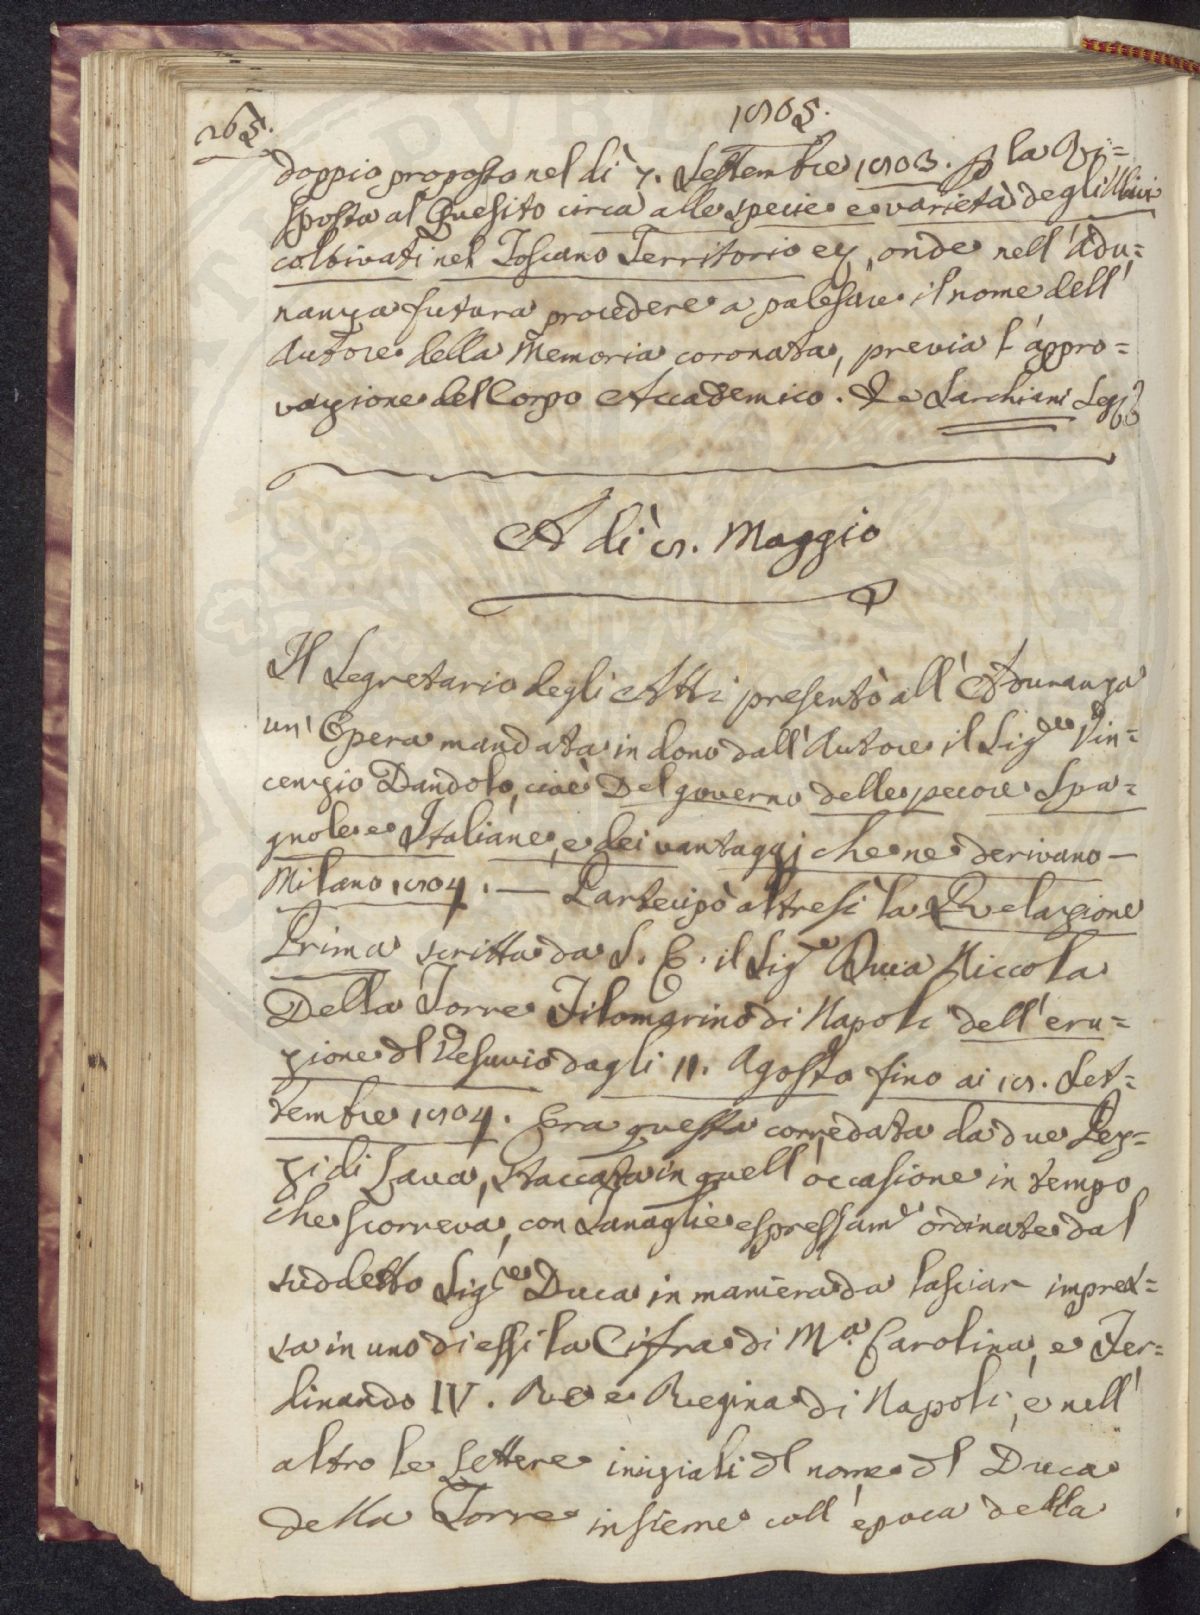 265.
1805.
doppio proposto nel dì 7. Settembre 1803. p la Ri=
sposta al Quesito circa alle specie e varietà degli Ulivi
coltivati nel Toscano Territorio ec, onde nell'Adu=
nanza futura procedere a palesare il nome dell'
Autore della Memoria coronata, previa l'appro=
vazione del Corpo Accademico. Sarchiani Seg
A dì 8. Maggio
Il Segretario degli Atti presentò all'Adunanza
un'Opera mandata in dono dall'Autore il Sig.re Vin=
cenzio Dandolo, cioè Del governo delle pecore Spa=
gnole e Italiane, e dei vantaggj che ne derivano —
Milano 1804. — Partecipò altresì la Relazione
Prima scritta da S. E. il Sig.re Duca Niccola
Della Torre Filomarino di Napoli dell'eru=
zione dl Vesuvio dagli 11. Agosto fino ai 18. Set=
tembre 1804. Era questa corredata da due Pez=
zi di Lava, staccata in quell'occasione in tempo
che scorreva, con Tanaglie espressam.e ordinate dal
suddetto Sig.re Duca in maniera da lasciar impres=
sa in uno di essi la Cifra di M.a Carolina, e Fer=
dinando IV. Re e Regina di Napoli, e nell'
altro le Lettere iniziali dl nome dl Duca
della Torre insieme coll'epoca della